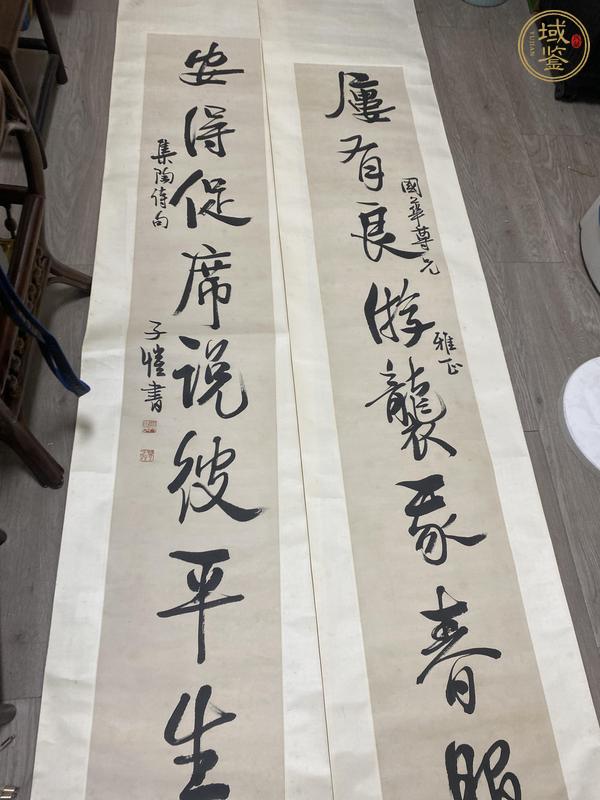 屢有良游襲我春服
國華尊兄
雅正
安得促席说彼平生
集陶诗句
子愷書
域鉴
YUJIAN